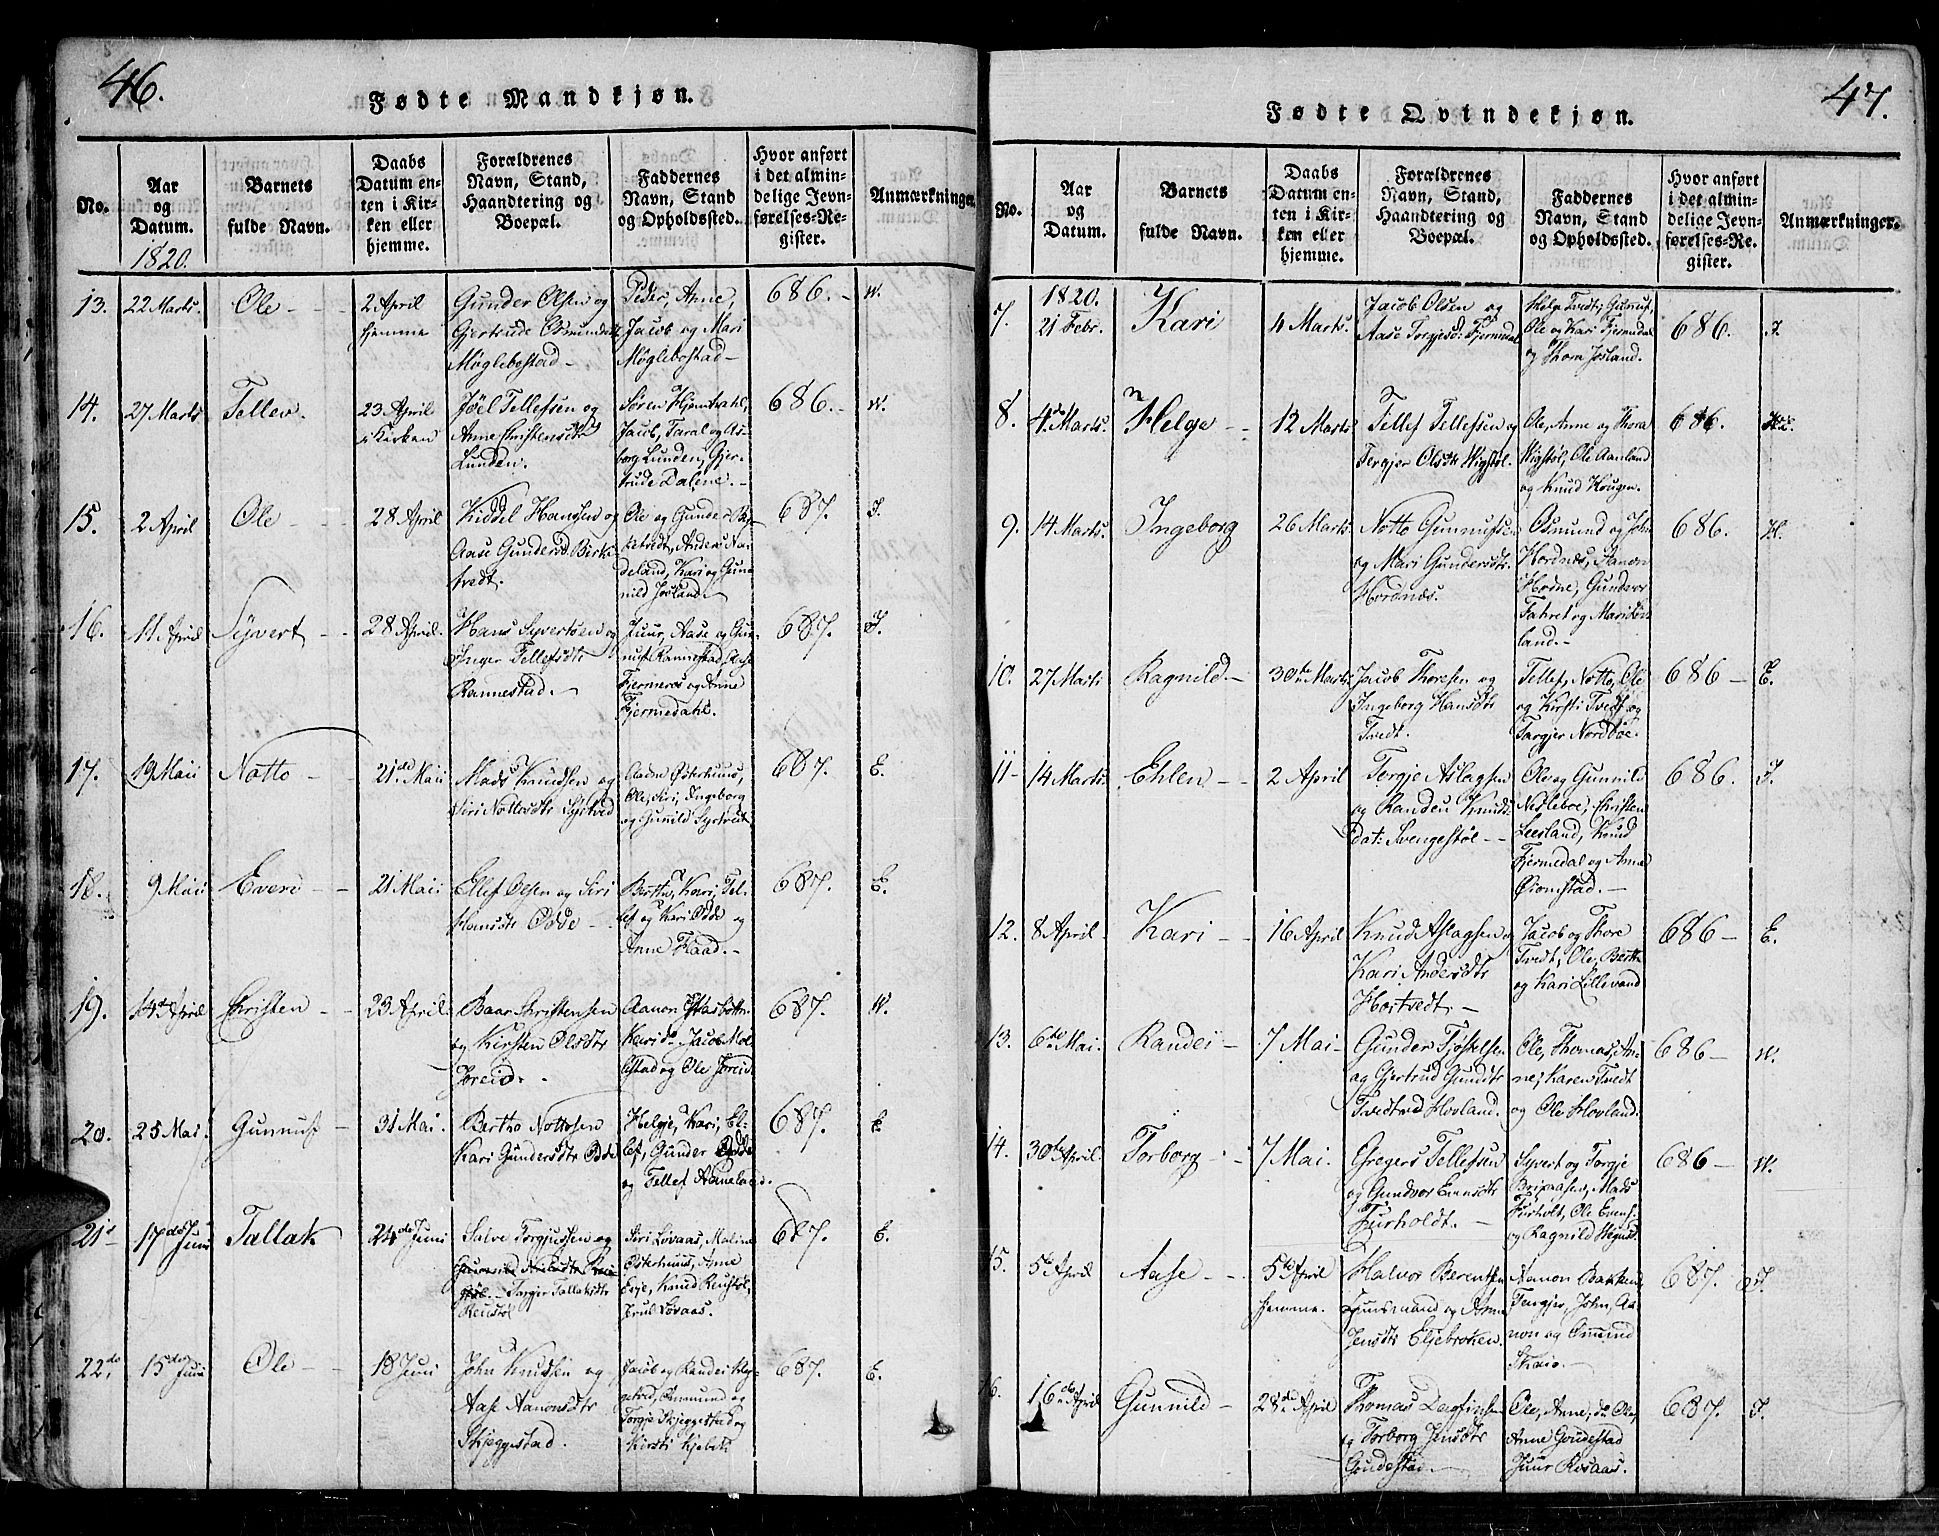 46.
Fødte Mandkjøn.
No.
Aar
og
Datum.
1820.
Barnets
fulde Navn.
Daabs
Datum en-
ten i Kir-
ken eller
hjemme.
Forældrenes
Navn, Stand,
Haandtering og
Boepæl.
Faddernes
Navn, Stand
og Opholdssted.
Hvor anført
i det almin-
delige Jevn-
førelses-Re-
gister.
Anmærkninger.
13. 22 Marts. Ole 2 April
hjemme
Gunder Olsen og
Gjertrude Osmundsdtr
Møglebostad
Peder, Anne,
Jacob og Mari
Møglebostad
686. W.
14. 27 Marts Tellev. 23 April
i Kirken
Joel Tellefsen og
Anne Christensdtr
Lunden.
Søren Hjemdahl,
Jacob, Taral og As-
borg Lunden, Gjer-
trude Dalene.
686. W.
15. 2 April Ole 28 April
Kiddel Hansen og
Aase Gundersd. Birke-
tvedt.
Ole og Gunder Bir-
ketvedt, Anders Na-
deland, Kari og Gun-
nild Josland.
687. I.
16. 11 April Syvert 28 April.
Hans Syvertsen og
Inger Tellefsdtr
Rannestad.
Juur, Aase og Gun-
nuf Rannestad, Aase
Fjermeros og Anne
Fjermedahl.
687. I.
17. 19 Maii Notto 21de Maii
Mads Knudsen og
Siri Nottosdtr Syrtved
Aadne Østerhuus,
Ole, Siri, Ingeborg
og Gunnild Syrtveit.
687. E.
18. 9 Maii Even 21 Maii
Ellef Olsen og Siri
Hansdtr Odde
Bertho, Kari, Tel-
lef og Kari Odde og
Anne Flaad.
687. E.
19. 14de April Christen 23 April.
Baar Christensen
og Kirsten Olsdtr
Foreid.
Aanon
Kari Jacob Mol-
lestad og Ole Foreid.
687. W.
20. 25 Mai. Gunnuf 31 Mai.
Bertho Nottosen
Kari Gundersdtr Odde
Helge, Kari, El-
lef, Gunder Odde
og Tellef Haneland.
687. E.
21. 17de Juni Tallak 24de Juni
Salve Torgiussen og
Torgjer Tallaksdtr
Reiestøl
Siri Løvaas, Maline
Østerhuus, Anne
Evje, Knud Reiestøl,
Truls Løvaas.
687. E.
22de 15de Juni Ole 18 Juni
John Knudsen og
Aase Aanonsdtr
Skjeggestad.
Jacob og Randei Hæg-
gestad, Osmund og
Torgje Skjeggestad og
Kirsti
687. E.
47.
Fødte Qvindekjøn.
No.
Aar
og
Datum.
Barnets
fulde Navn.
Daabs
Datum en-
ten i Kir-
ken eller
hjemme.
Forældrenes
Navn, Stand,
Haandtering og
Boepæl.
Faddernes
Navn, Stand
og Opholdssted.
Hvor anført
i det almin-
delige Jevn-
førelses-Re-
gister.
Anmærkninger.
1820.
7. 21 Febr. Kari 4 Marts.
Jacob Olsen og
Aase Torgjesd: Fjermedal
Helge Tvedt, Gunnuf,
Ole og Kari Fjermedal
og Thora Josland.
686. I
8. 4de Marts. Helge 12 Marts
Tellef Tellefsen og
Tergjer Olsdtr Wigstøl.
Ole, Anne og Thora
Wigstøl, Ole Aanland
og Knud Hougen.
686.
9. 14 Marts. Ingeborg 26 Marts.
Notto Gunnufsen
og Mari Gundersdtr.
Hordnæs.
Osmund og John
Hordnes, Aanon
Hodne, Gundvor
Fahret og Mari
land.
686. H.
10. 27 Marts Ragnild 30te Marts.
Jacob Thoresen og
Ingeborg Hansdtr
Tvedt.
Tellef, Notto, Ole
og Kirsti Tvedt og
Targjer Nordbøe.
686 E.
11 14 Marts. Ehlen 2 April
Torgje Aslagsen
og Randei Knuds-
dat: Svengestøl
Ole og Gunnild
Nesleboe, Christen
Leesland, Knud
Fjermedal og Anne
Øiomstad.
686. I.
12. 8 April Kari 16 April
Knud Aslagsen og
Kari Andersdtr
Hortvedt.
Jacob og Thore
Tvedt, Ole, Berthe
og Kari Lillevand
686 E.
13. 6te Mai. Randei 7 Mai
Gunder Tjøstelsen
og Gjertrud Gundtr
Tvedtved Hovland.
Ole, Thomas, An-
ne, Karen Tvedt
og Ole Hovland.
686 W.
14. 30te April. Torborg 7 Mai.
Gregers Tellefsen
og Gundvor Evensdtr
Furholdt.
Syvert og Torgje
Brijeaasen, Mads
Furholt, Ole Evens.
og Ragnild
686 W.
15. 5te April Aase 5te April
hjemme.
Halvor Berentsen
Huusmand og Anne
Jensdtr Eljebroken.
Aanon Bakken,
Tergjer, John, Aa-
non og Osmund
Skaio.
687. I.
16. 16de April Gunnild 28de April
Thomas Dagfinsen
og Torborg Jensdtr
Goudestad.
Ole, Anne, do Ole,
Anne Goudestad
Juur Rosaas.
687. I.